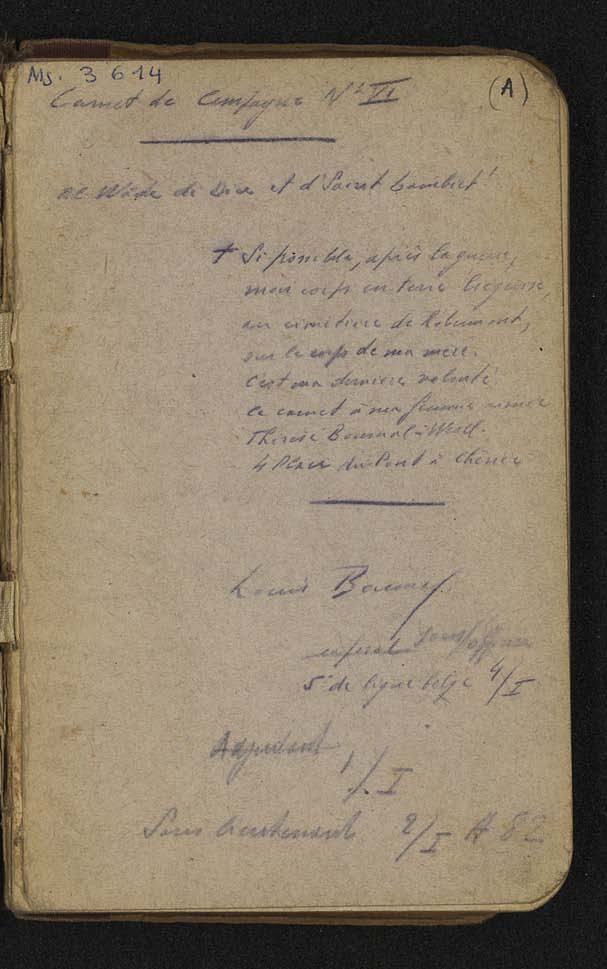 Ms. 3614
(A)
Carnet de Campagne N° VI
de Dieu et d
† Si possible, après la guerre,
mon corps en terre liégeoise,
au cimetière de Robermont,
sur le corps de ma mère.
C'est ma dernière volonté
ce carnet à ma femme aimée
Thérèse
4 Place du Pont à Chênée
Louis
caporal Sous/officier
5e de ligne belge 4/I
Adjudant 1/I
Sous lieutenant 2/I A 82